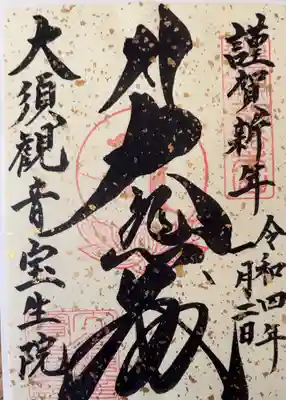 謹賀新年
令和四年
一月二日
大悲殿
大須観音宝生院